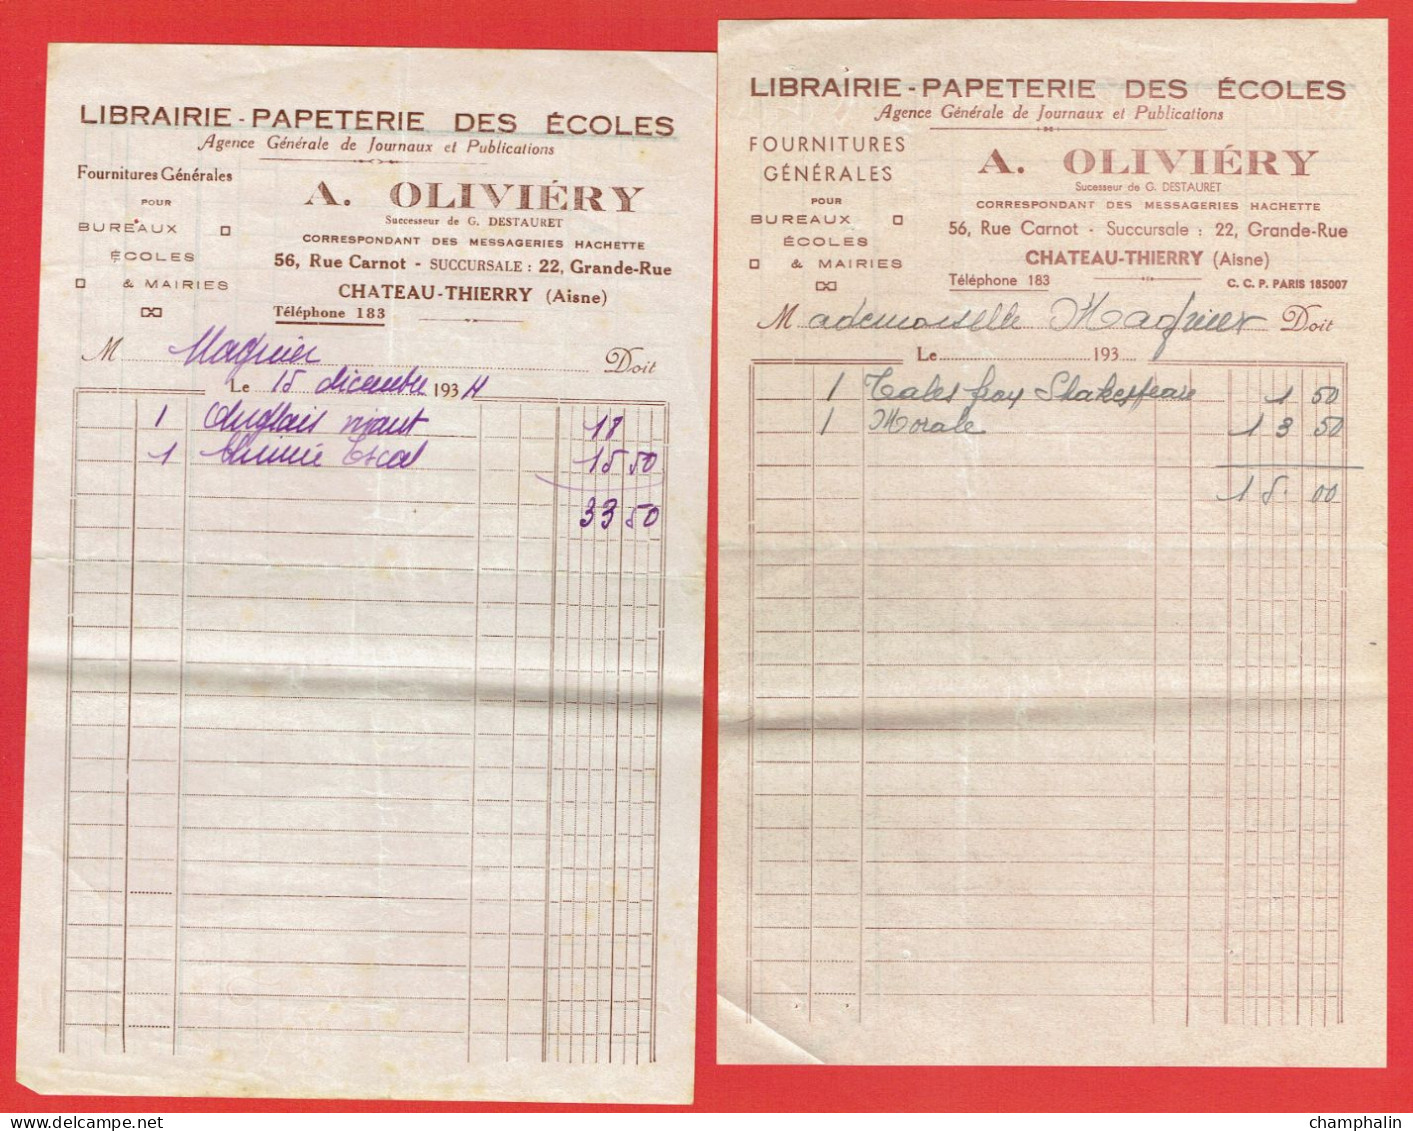 LIBRAIRIE - PAPETERIE DES ÉCOLES
Agence Générale de Journaux et Publications
Fournitures Générales
POUR
BUREAUX
ÉCOLES
& MAIRIES
A. OLIVIÉRY
Successeur de G. DESTAURET
CORRESPONDANT DES MESSAGERIES HACHETTE
56, Rue Carnot - SUCCURSALE : 22, Grande-Rue
CHATEAU-THIERRY (Aisne)
Téléphone 183
M Magnier Doit
Le 15 décembre 1934
1 Anglais 18
1 Chimie 15 50
33 50
LIBRAIRIE - PAPETERIE DES ÉCOLES
Agence Générale de Journaux et Publications
FOURNITURES
GÉNÉRALES
POUR
BUREAUX
ÉCOLES
& MAIRIES
A. OLIVIÉRY
Sucesseur de G. DESTAURET
CORRESPONDANT DES MESSAGERIES HACHETTE
56, Rue Carnot - Succursale : 22, Grande-Rue
CHATEAU-THIERRY (Aisne)
Téléphone 183 C. C. P. PARIS 185007
Mademoiselle Magnier Doit
Le 193
1 Tales from Shakespeare 1 50
1 Morale 13 50
15.00
delcampe.net
champhalin